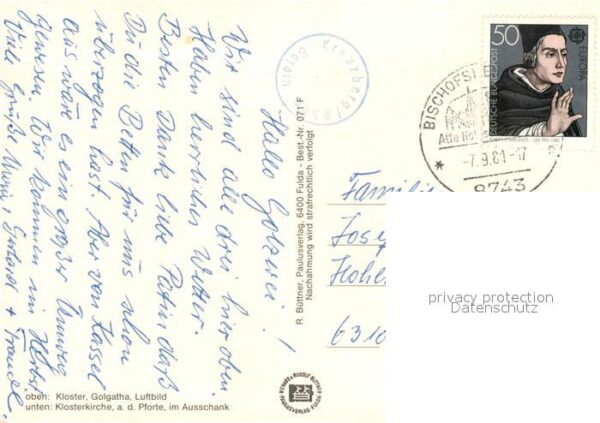 Hallo Golzene!
Wir sind alle drei hier oben.
Haben herrliches Wetter.
Besten Dank liebe Patin daß
Du die Betten für uns schon
überzogen hast. Aber von Kassel
aus wäre es ein großer Umweg
gewesen. Wir kommen im Herbst
Viele Grüße Maria, Gerhardt + Traudl.
oben: Kloster, Golgatha, Luftbild
unten: Klosterkirche, a. d. Pforte, im Ausschank
R. Büttner, Paulusverlag, 6400 Fulda - Best.-Nr. 071 F
Nachahmung wird strafrechtlich verfolgt
Kreuzberg
50
EUROPA
DEUTSCHE BUNDESPOST
BISCHOFS
Alte
-7.9.81-17
8743
Familie
Jose
Hohe
6310
privacy protection
Datenschutz
RICHARD & RUDOLF BÜTTNER
PAULUSVERLAG FULDA